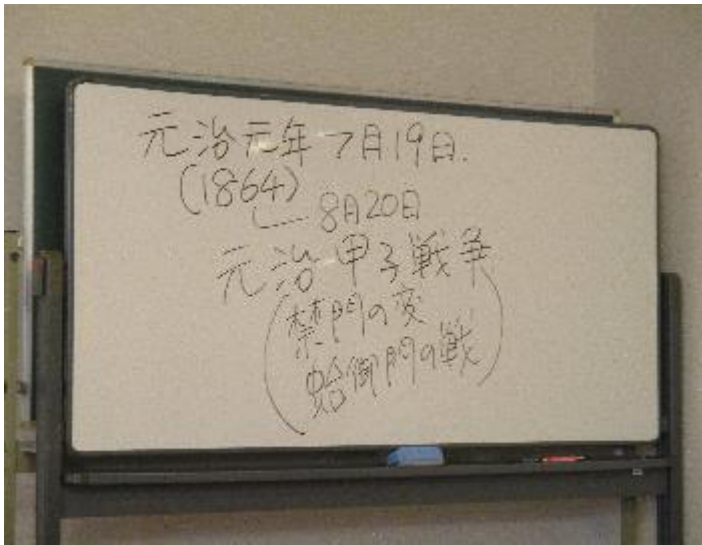 元治元年7月19日.
(1864)
8月20日
元治甲子戦争
(禁門の変
蛤御門の戦)